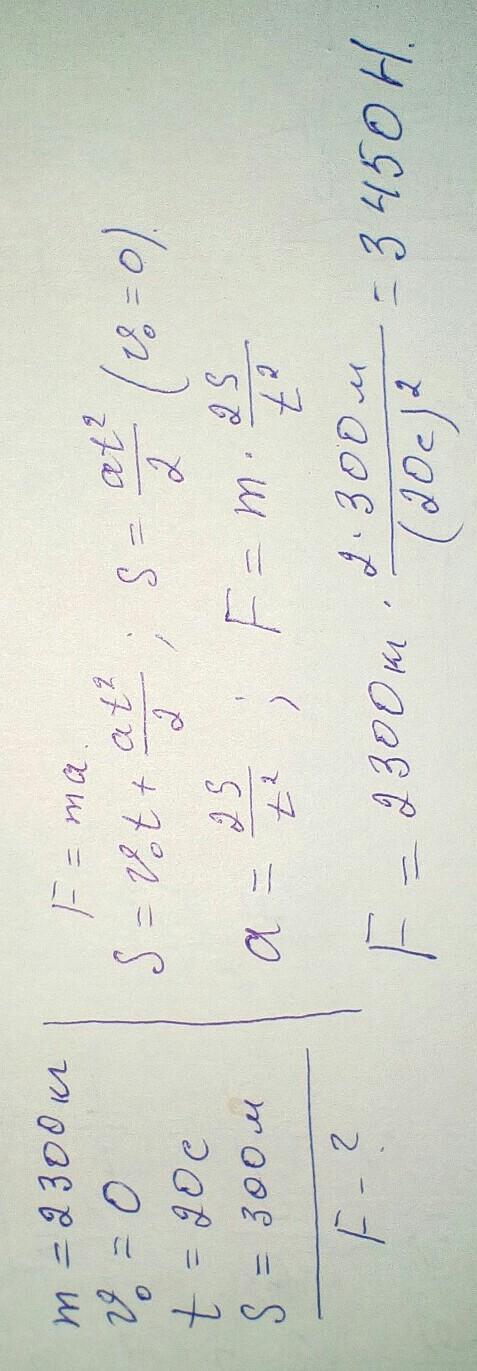 m = 2300 кг
v₀ = 0
t = 20 с
S = 300 м
F - ?
F = ma.
S = v₀t + at²/2 ; S = at²/2 (v₀ = 0).
a = 2S/t² ; F = m · 2S/t²
F = 2300 кг · 2·300 м/(20 с)² = 3450 Н.